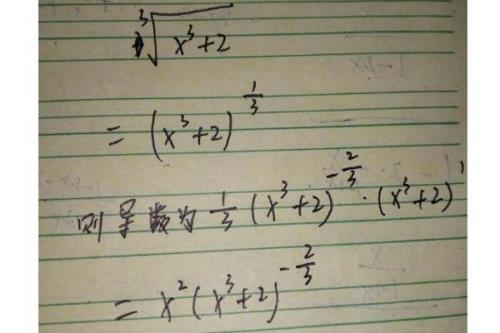 ∛(x³+2)
= (x³+2)^(1/3)
则导数为 1/3 (x³+2)^(-2/3) · (x³+2)'
= x² (x³+2)^(-2/3)